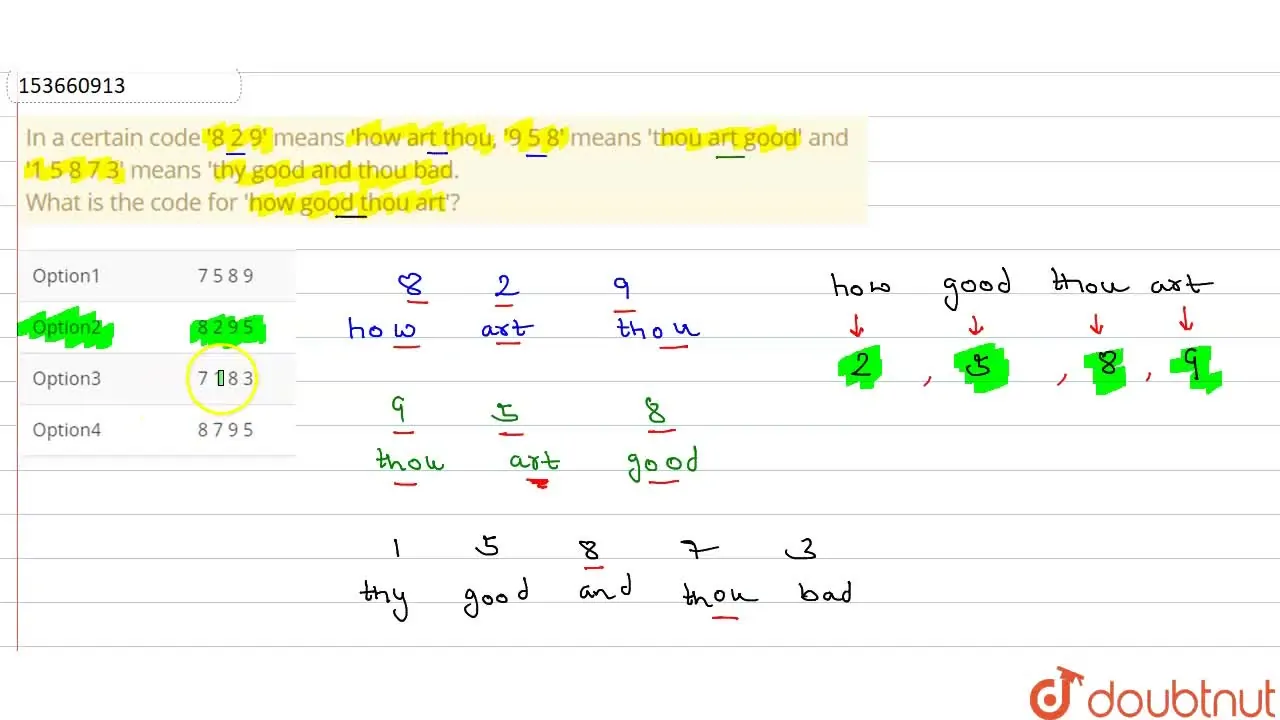 153660913
In a certain code '8 2 9' means 'how art thou, '9 5 8' means 'thou art good' and
'1 5 8 7 3' means 'thy good and thou bad.
What is the code for 'how good thou art'?
Option1 7 5 8 9
Option2 8 2 9 5
Option3 7 1 8 3
Option4 8 7 9 5
8 2 9
how art thou
9 5 8
thou art good
1 5 8 7 3
thy good and thou bad
how good thou art
2 , 5 , 8 , 9
doubtnut